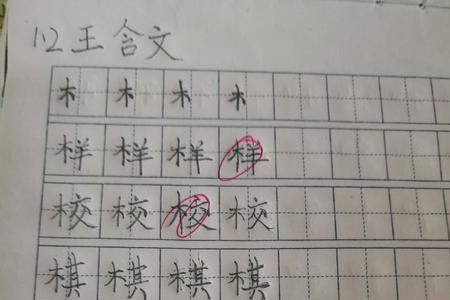 12王含文
木 木 木 木
样 样 样 样
校 校 校 校
棋 棋 棋 棋